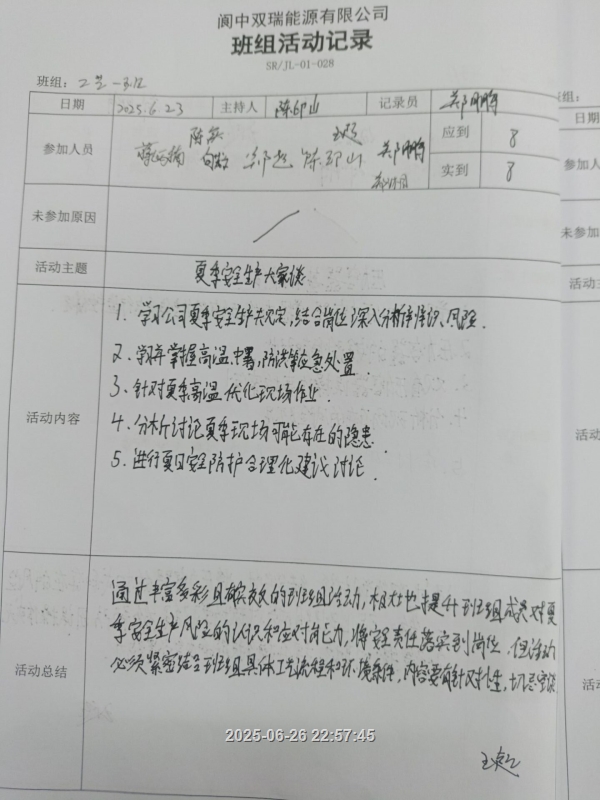 阆中双瑞能源有限公司
班组活动记录
SR/JL-01-028
班组：工艺一班 班组：
日期 2025.6.23 主持人 陈邱山 记录员 郑明鹏 日期
参加人员 应到 8 参加人
陈邱山 郑明鹏 实到 8
未参加原因 未参加
活动主题 夏季安全生产大家谈 活动主
1. 学习公司夏季安全生产规定，结合岗位深入分析 风险.
2. 学习并掌握高温中暑、防洪等应急处置.
3. 针对夏季高温优化现场作业.
活动内容 活动
4. 分析讨论夏季现场可能存在的隐患.
5. 进行夏日安全防护合理化建议讨论.
通过丰富多彩且 的班组活动，极大地提升班组成员对夏
季安全生产风险的认识和应对能力，将安全责任落实到岗位，但活动
活动总结 必须紧密结合班组具体工艺流程和环境条件，内容要有针对性，切忌空谈 活动
2025-06-26 22:57:45